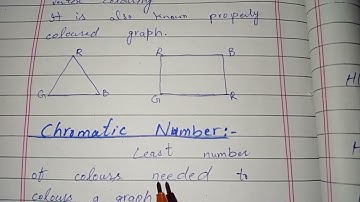 vertex colouring
It is also known properly
coloured graph.
R
R B
G B
G R
Chromatic Number:-
Least number
of colours needed to
colours a graph
H